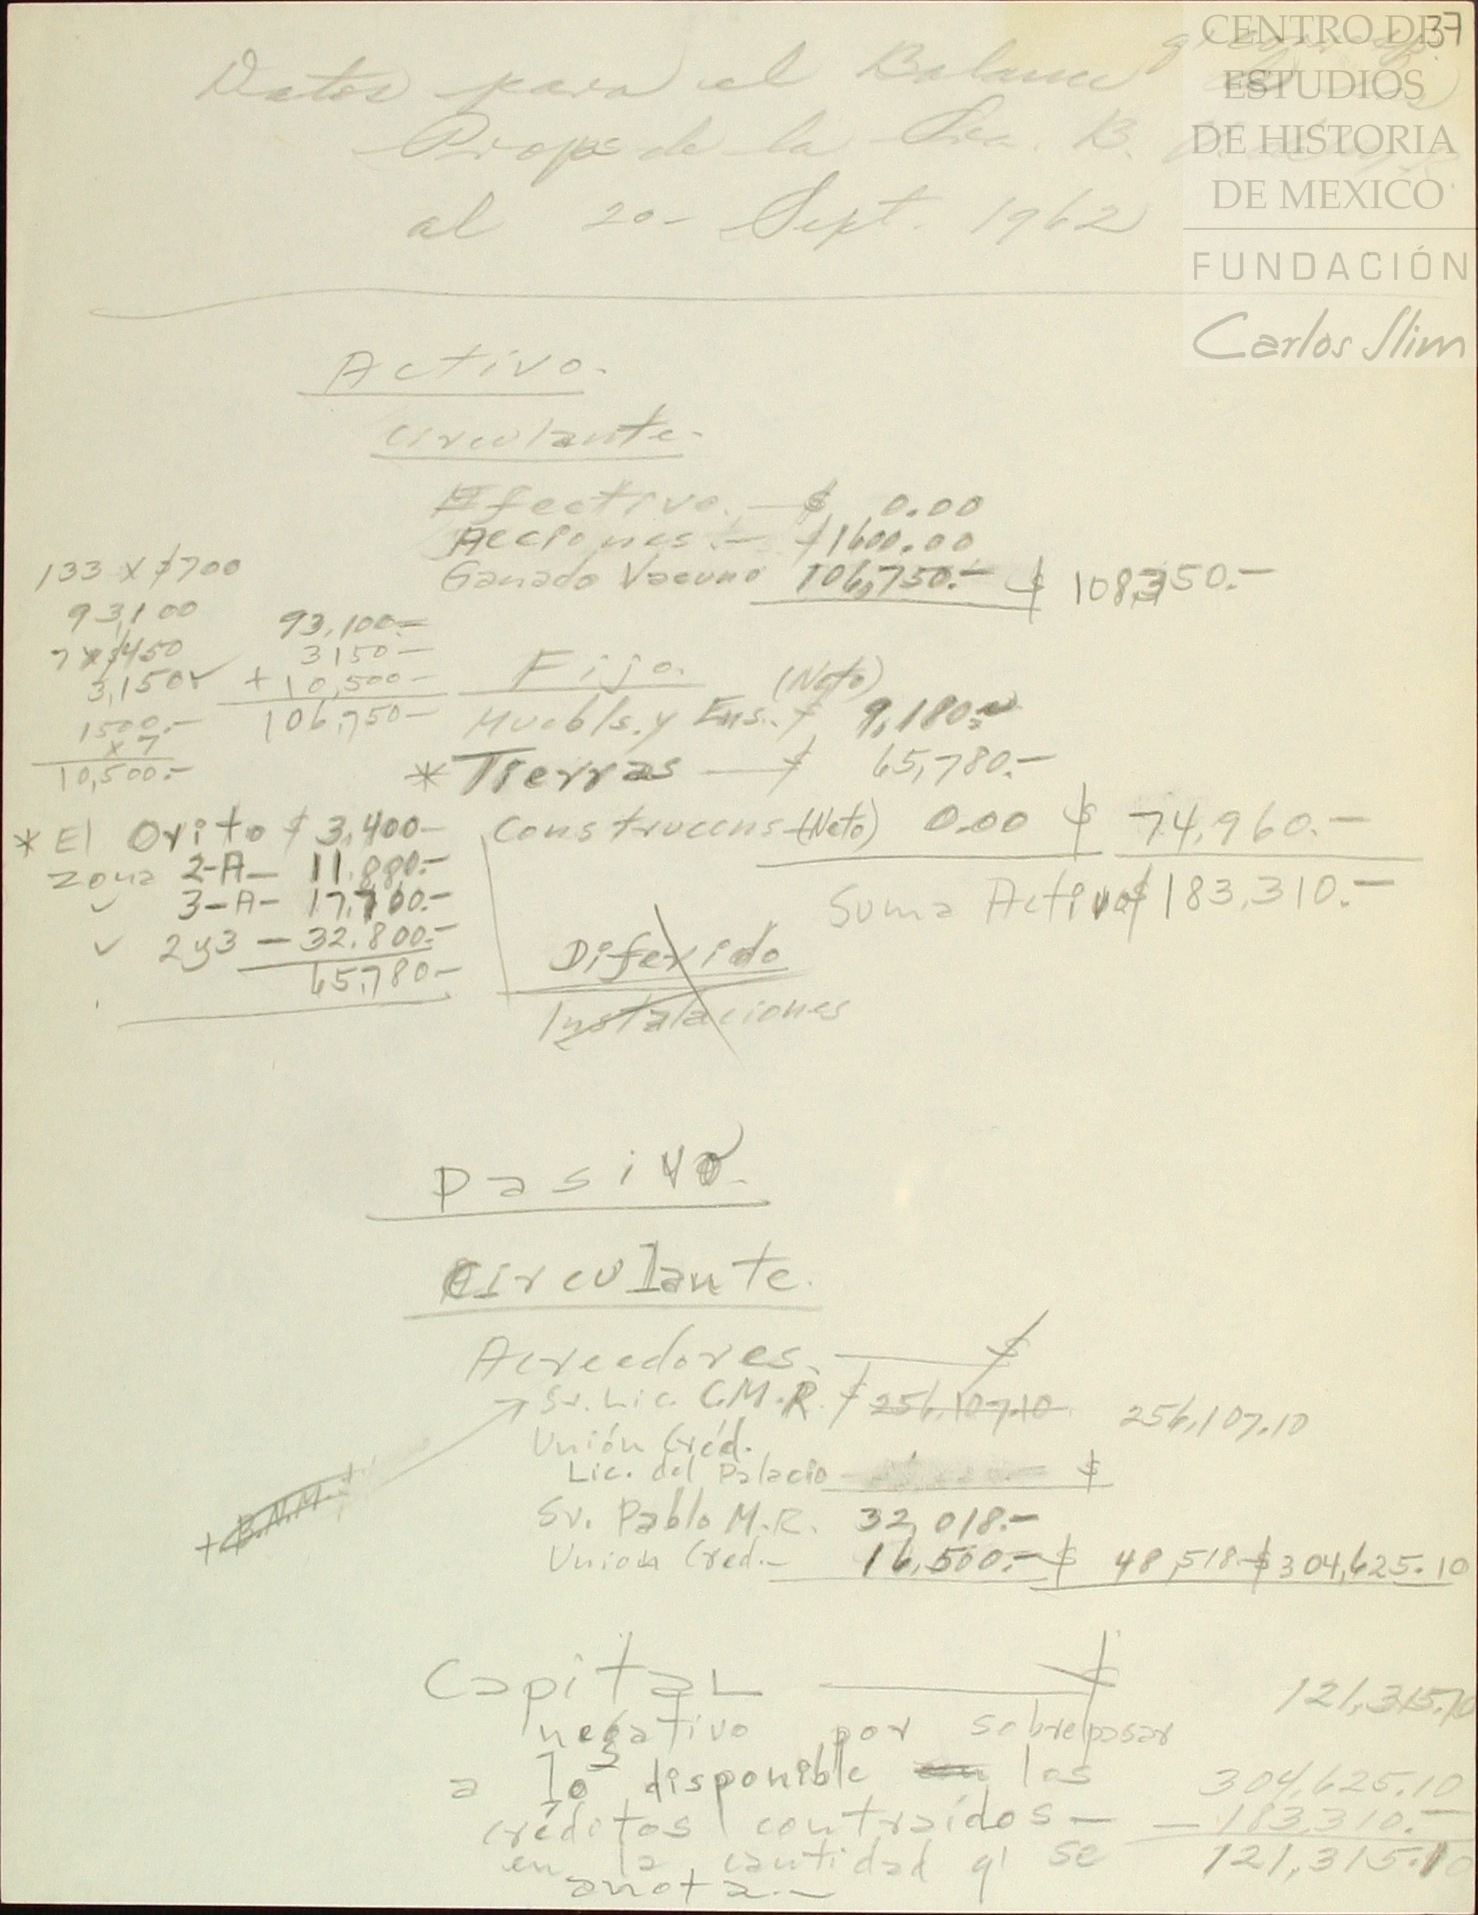 37
CENTRO DE
ESTUDIOS
DE HISTORIA
DE MEXICO
FUNDACIÓN
Carlos Slim
Datos para el Balance
Prop. de la Sra. B.
al 20 - Sept. 1962
Activo.
Circulante.-
Efectivo. — $ 0.00
Acciones.- — $1600.00
Ganado Vacuno 106,750.- $ 108,350.-
133 x $700
93,100
7 x $450
3,150
1500.-
x 7
10,500.-
93,100.-
3150-
+ 10,500-
106,750-
Fijo.
(Neto)
Muebls. y Ens. $ 9,180.-
* Tierras — $ 65,780.-
Construccns (Neto) 0.00 $ 74,960.-
Suma Activo $ 183,310.-
* El Orito $ 3,400-
Zona 2-A- 11,880.-
✓ 3-A- 17,700.-
✓ 2y3 - 32,800.-
65,780-
Diferido
Instalaciones
Pasivo.
Circulante.
Acreedores. — $
Sr. Lic. C.M.R. $ 256,107.10 256,107.10
Unión Créd.
Lic. del Palacio $
+ B.N.M. +
Sr. Pablo M.R. 32,018.-
Union Cred.- 16,500.- $ 48,518.- $ 304,625.10
Capital — $ 121,315.10
negativo por sobrepasar
a los disponible en los
créditos contraídos -
en la cantidad q' se
anota.-
304,625.10
- 183,310.-
121,315.10